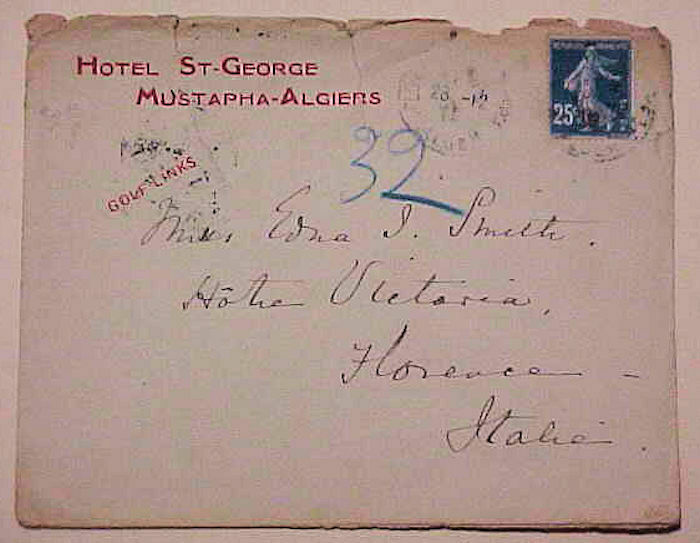 HOTEL ST-GEORGE
MUSTAPHA-ALGIERS
GOLF-LINKS
25
32
Miss Edna I. Smith.
Hôtel Victoria,
Florence -
Italie.